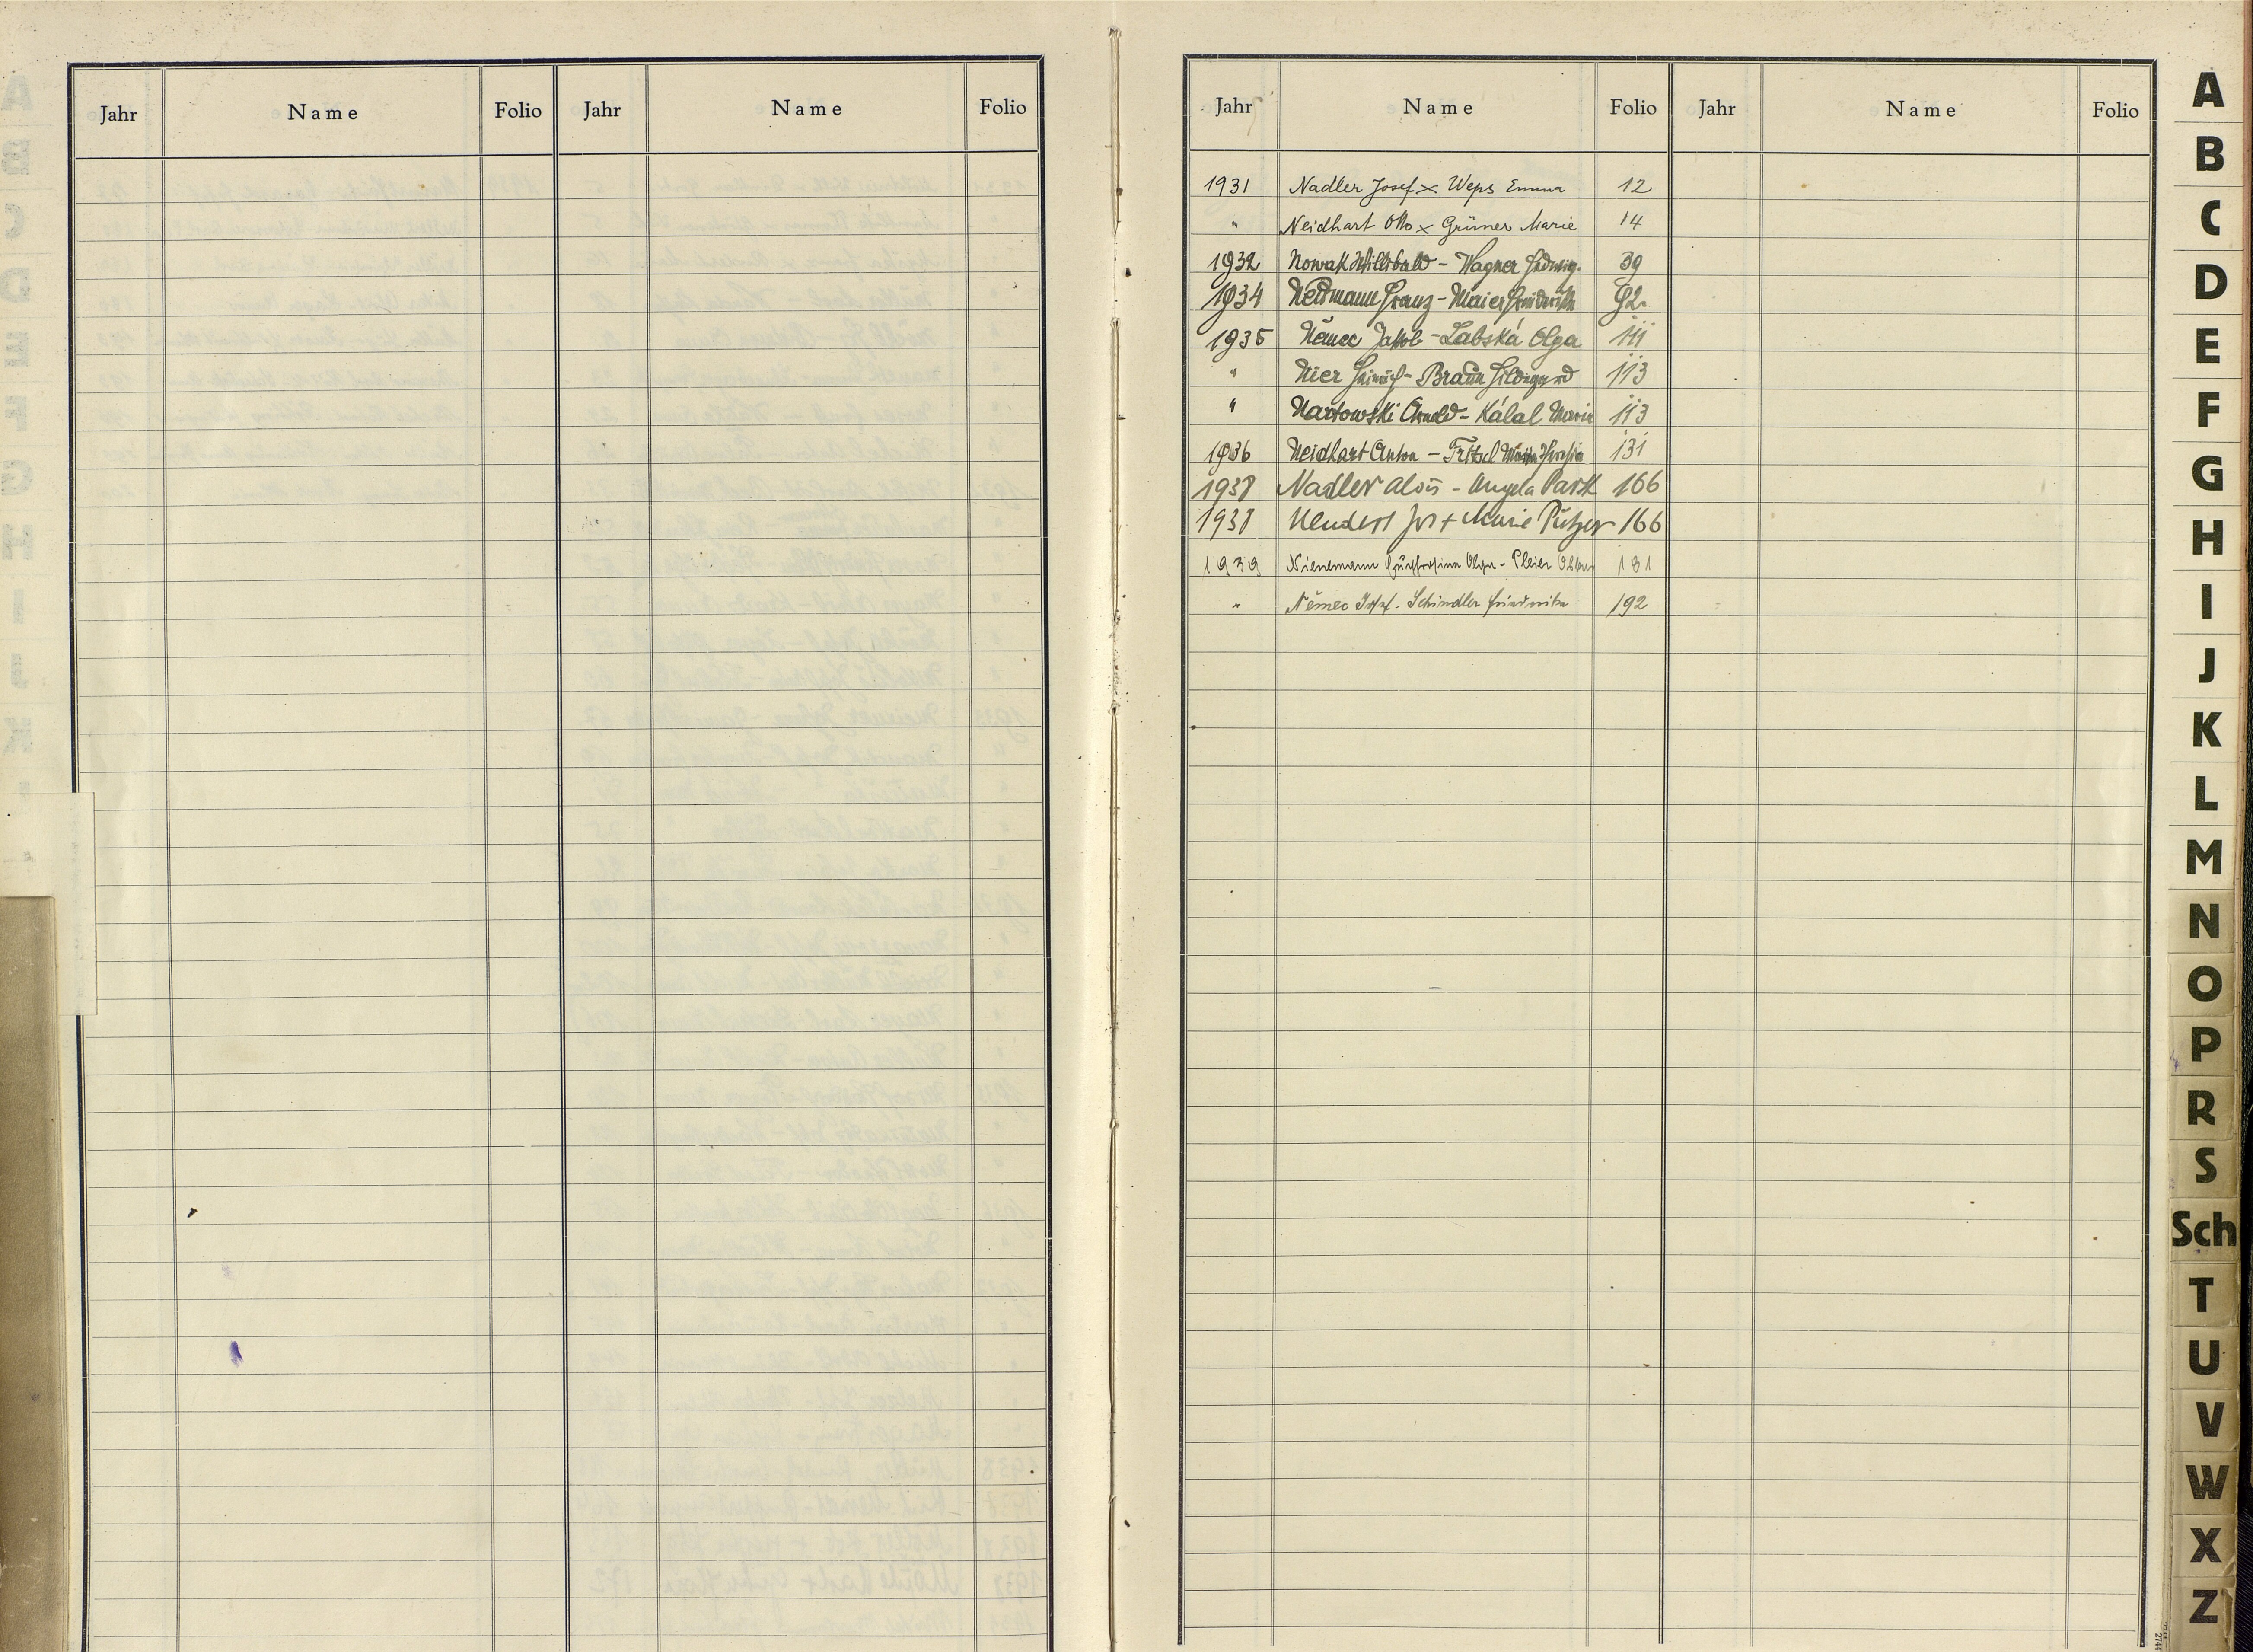 Jahr Name Folio Jahr Name Folio
Jahr Name Folio Jahr Name Folio
1931 Nadler Josef x Weps Emma 12
" Neidhart Otto x Grüner Marie 14
1932 Nowak Willibald - Wagner Hedwig. 39
1934 Neumann Franz - Maier Friederike 92.
1935 Němec Jakob - Labská Olga 111
" Nier Heinrich - Braun Hildegard 113
" Nartowski Arnold - Kálal Marie 113
1936 Neidhart Anton - Fritscl Maria 131
1938 Nadler Alois - Angela Park 166
1938 Jos + Marie Putzer 166
1939 Nienemann Olga - Pleier 181
" Němec Josef - Schindler Friederike 192
A
B
C
D
E
F
G
H
I
J
K
L
M
N
O
P
R
S
Sch
T
U
V
W
X
Z